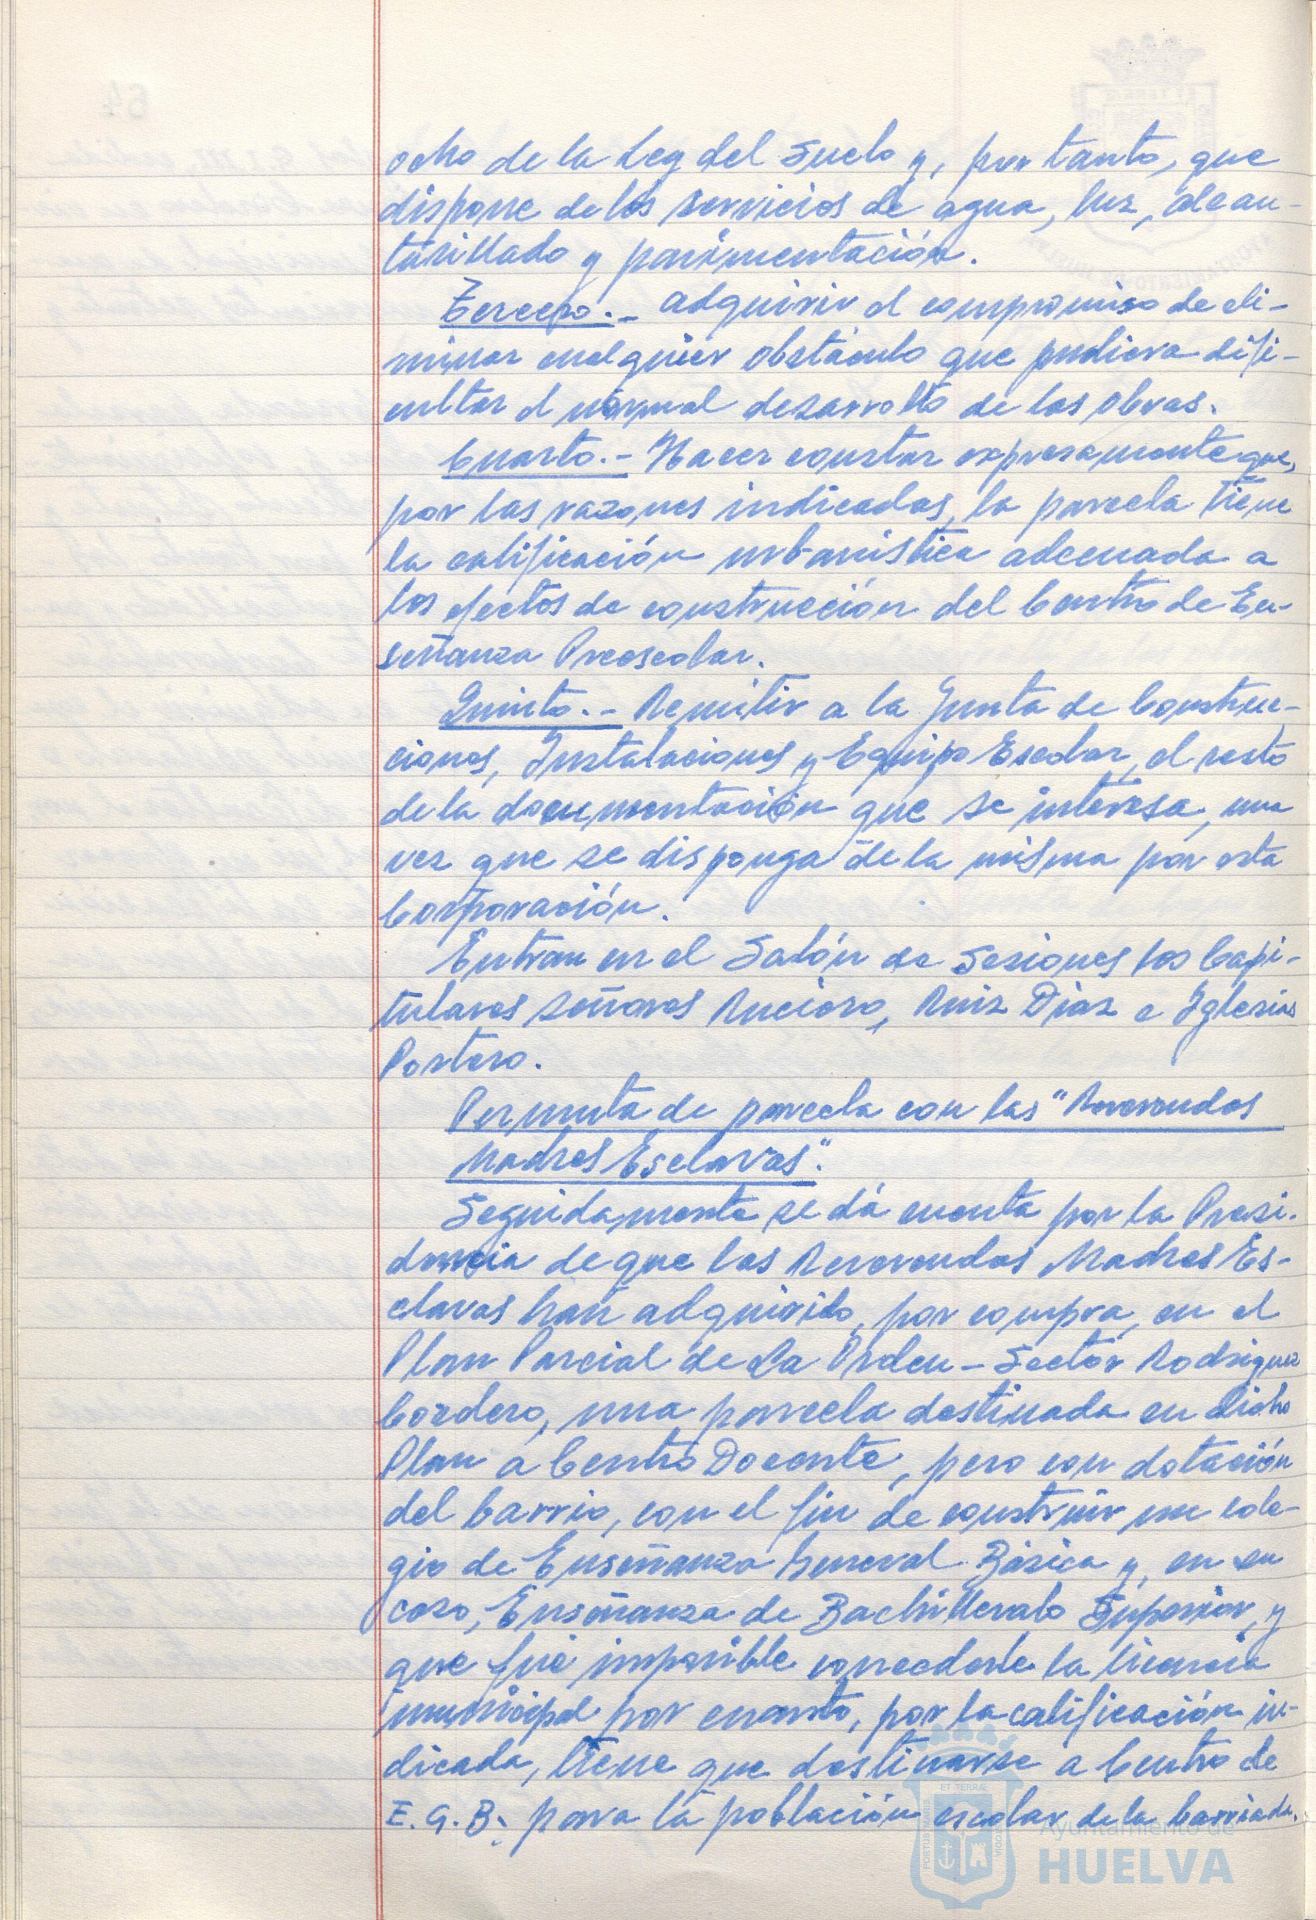 ocho de la Ley del Suelo y, por tanto, que
dispone de los servicios de agua, luz, alcan-
tarillado y pavimentación.
Tercero.- Adquirir el compromiso de eli-
minar cualquier obstáculo que pudiera difi-
cultar el normal desarrollo de las obras.
Cuarto.- Hacer constar expresamente que,
por las razones indicadas, la parcela tiene
la calificación urbanística adecuada a
los efectos de construcción del Centro de En-
señanza Preescolar.
Quinto.- Remitir a la Junta de Construc-
ciones, Instalaciones y Equipo Escolar, el resto
de la documentación que se interesa, una
vez que se disponga de la misma por esta
Corporación.
Entran en el Salón de Sesiones los Capi-
tulares señores Rucioso, Ruiz Díaz e Iglesias
Postero.
Permuta de parcela con las "Reverendas
Madres Esclavas".
Seguidamente se dá cuenta por la Presi-
dencia de que las Reverendas Madres Es-
clavas han adquirido, por compra, en el
Plan Parcial de La Orden - Sector Rodriguez
Cordero, una parcela destinada en dicho
Plan a Centro Docente, pero con dotación
del barrio, con el fin de construir un cole-
gio de Enseñanza General Básica y, en su
caso, Enseñanza de Bachillerato Superior, y
que fué imposible concederle la licencia
municipal por cuanto, por la calificación in-
dicada, tiene que destinarse a Centro de
E.G.B. para la población escolar de la barriada.
Ayuntamiento de
HUELVA